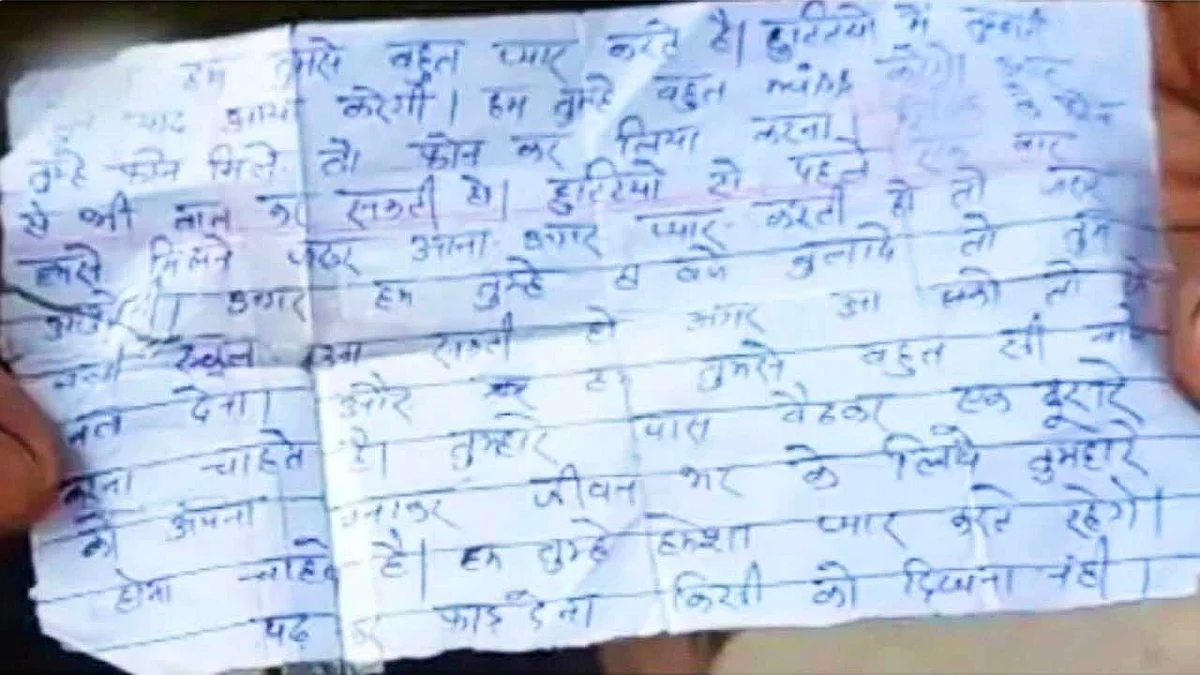 हम तुमसे बहुत प्यार करते है। छुटटियो में तुम्हारी
याद आया करेगी। हम तुम्हे बहुत miss करेगे। अगर
तुम्हे फोन मिले तो फोन कर लिया करना।
से भी बात कर सकती हो। छुटटियो से पहले एक बार
हमसे मिलने जरूर आना अगर प्यार करती हो तो जरूर
आओगी। अगर हम तुम्हे 8 बजे बुलादे तो तुम
स्कूल आ सकती हो अगर आ सको तो
बता देना। और हम तुमसे बहुत सी बाते
करना चाहते है। तुम्हारे पास बैठकर एक दूसरे
को अपना बनाकर जीवन भर के लिये तुमहारे
होना चाहते है। हम तुम्हे हमेशा प्यार करते रहेगे।
पढ़ कर फाड़ देना किसी को दिखाना नंही।